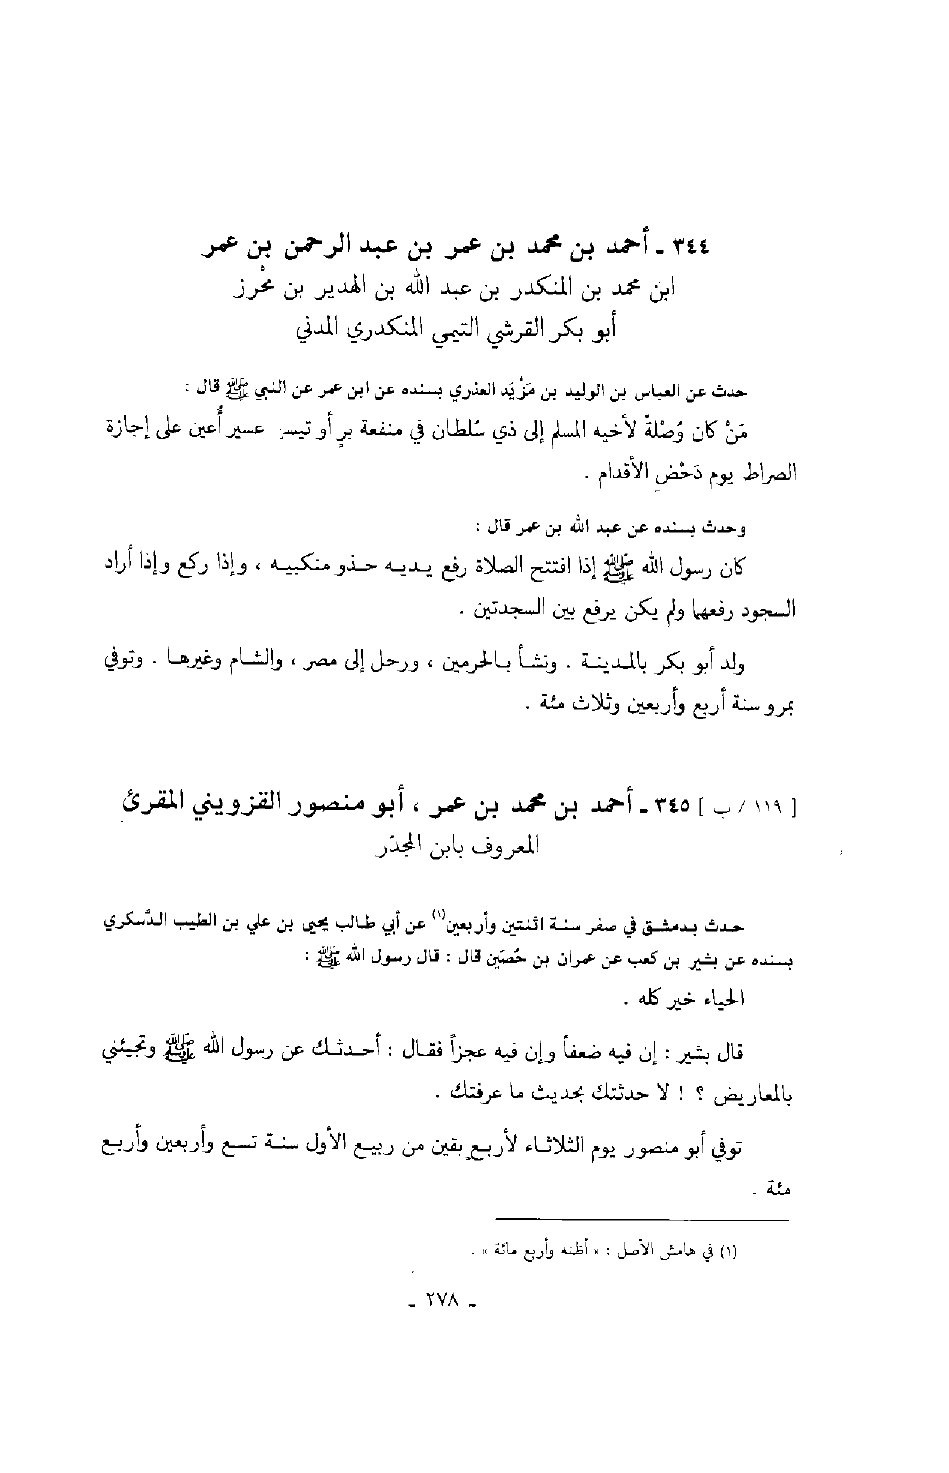 ٣٤٤ ـ أحمد بن محمد بن عمر بن عبد الرحمن بن عمر
ابن محمد بن المنكدر بن عبد الله بن الهدير بن مُحْرز
أبو بكر القرشي التيمي المنكدري المدني
حدث عن العباس بن الوليد بن مَزْيَد العذري بسنده عن ابن عمر عن النبي ﷺ قال :
مَنْ كان وُصْلةً لأخيه المسلم إلى ذي سُلطان في منفعة برٍ أو تيسير عسير أُعين على إجازة
الصراط يوم دَحْضِ الأقدام .
وحدث بسنده عن عبد الله بن عمر قال :
كان رسول الله ﷺ إذا افتتح الصلاة رفع يديه حذو منكبيه ، وإذا ركع وإذا أراد
السجود رفعها ولم يكن يرفع بين السجدتين .
ولد أبو بكر بالمدينة . ونشأ بالحرمين ، ورحل إلى مصر ، والشام وغيرها . وتوفي
بمرو سنة أربع وأربعين وثلاث مئة .
[ ١١٩ / ب ] ٣٤٥ ـ أحمد بن محمد بن عمر ، أبو منصور القزويني المقرئ
المعروف بابن المجدّر
حدث بدمشق في صفر سنة اثنتين وأربعين(١) عن أبي طالب يحيى بن علي بن الطيب الدَّسكري
بسنده عن بشير بن كعب عن عمران بن حُصَين قال : قال رسول الله ﷺ :
الحياء خير كله .
قال بشير : إن فيه ضعفاً وإن فيه عجزاً فقال : أحدثك عن رسول الله ﷺ وتجيئني
بالمعاريض ؟ ! لا حدثتك بحديث ما عرفتك .
توفي أبو منصور يوم الثلاثاء لأربع بقين من ربيع الأول سنة تسع وأربعين وأربع
مئة .
(١) في هامش الأصل : « أظنه وأربع مائة » .
ـ ٢٧٨ ـ